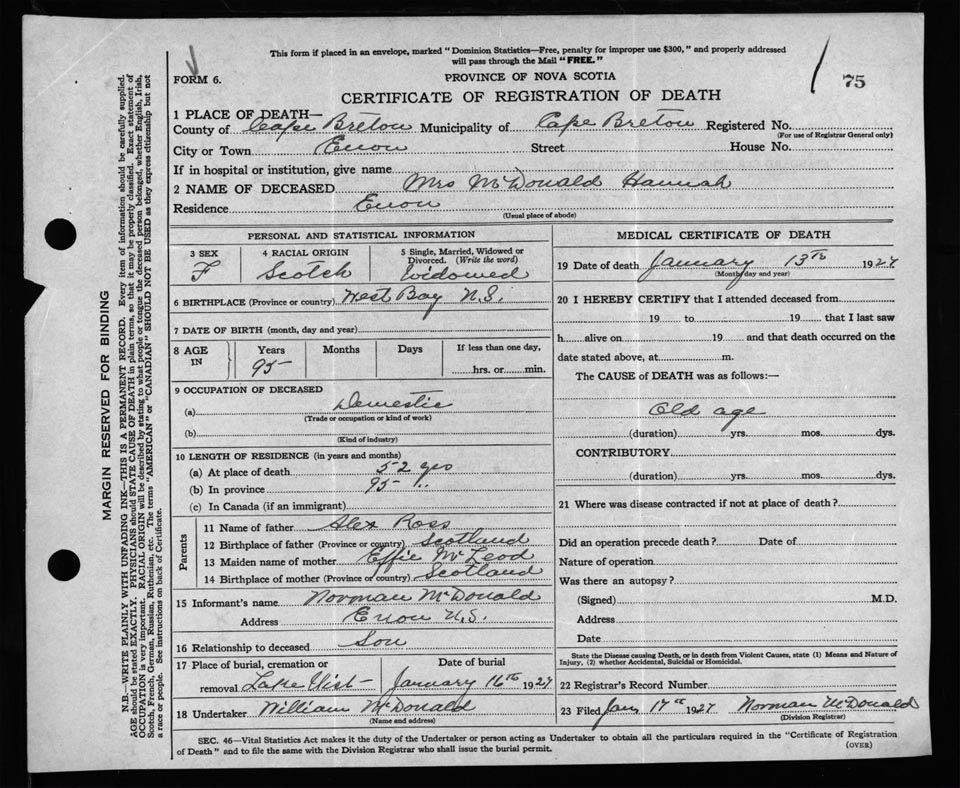 This form if placed in an envelope, marked "Dominion Statistics—Free, penalty for improper use $300," and properly addressed
will pass through the Mail "FREE."
FORM 6.
PROVINCE OF NOVA SCOTIA
75
CERTIFICATE OF REGISTRATION OF DEATH
1 PLACE OF DEATH—
County of Cape Breton Municipality of Cape Breton Registered No.
(For use of Registrar General only)
City or Town Enon Street House No.
If in hospital or institution, give name
2 NAME OF DECEASED Mrs McDonald Hannah
Residence Enon
(Usual place of abode)
PERSONAL AND STATISTICAL INFORMATION
3 SEX 4 RACIAL ORIGIN 5 Single, Married, Widowed or Divorced. (Write the word)
F Scotch Widowed
6 BIRTHPLACE (Province or country) West Bay N.S.
7 DATE OF BIRTH (month, day and year)
8 AGE IN Years Months Days If less than one day,
95 hrs. or min.
9 OCCUPATION OF DECEASED
(a) Domestic
(Trade or occupation or kind of work)
(b)
(Kind of industry)
10 LENGTH OF RESIDENCE (in years and months)
(a) At place of death 52 yrs
(b) In province 95 "
(c) In Canada (if an immigrant)
Parents
11 Name of father Alex Ross
12 Birthplace of father (Province or country) Scotland
13 Maiden name of mother Effie McLeod
14 Birthplace of mother (Province or country) Scotland
15 Informant's name Norman McDonald
Address Enon N.S.
16 Relationship to deceased Son
17 Place of burial, cremation or Date of burial
removal Lake Uist January 16th 1927
18 Undertaker William McDonald
(Name and address)
MEDICAL CERTIFICATE OF DEATH
19 Date of death January 13th 1927
(Month, day and year)
20 I HEREBY CERTIFY that I attended deceased from
19 to 19 that I last saw
h alive on 19 and that death occurred on the
date stated above, at m.
The CAUSE of DEATH was as follows:—
Old age
(duration) yrs. mos. dys.
CONTRIBUTORY
(duration) yrs. mos. dys.
21 Where was disease contracted if not at place of death?
Did an operation precede death? Date of
Nature of operation
Was there an autopsy?
(Signed) M.D.
Address
Date
State the Disease causing Death, or in death from Violent Causes, state (1) Means and Nature of
Injury, (2) whether Accidental, Suicidal or Homicidal.
22 Registrar's Record Number
23 Filed Jan 17th 1927 Norman McDonald
(Division Registrar)
SEC. 46—Vital Statistics Act makes it the duty of the Undertaker or person acting as Undertaker to obtain all the particulars required in the "Certificate of Registration
of Death" and to file the same with the Division Registrar who shall issue the burial permit.
(OVER)
MARGIN RESERVED FOR BINDING
N.B.—WRITE PLAINLY WITH UNFADING INK—THIS IS A PERMANENT RECORD. Every item of information should be carefully supplied.
AGE should be stated EXACTLY. PHYSICIANS should STATE CAUSE OF DEATH in plain terms, so that it may be properly classified. Exact statement of
OCCUPATION is very important. RACIAL ORIGIN will be described by stating to what people or tongue the deceased person belonged, whether English, Irish,
Scotch, French, German, Russian, Ruthenian, etc. The terms "AMERICAN" or "CANADIAN" SHOULD NOT BE USED as they express citizenship but not
a race or people. See instructions on back of Certificate.